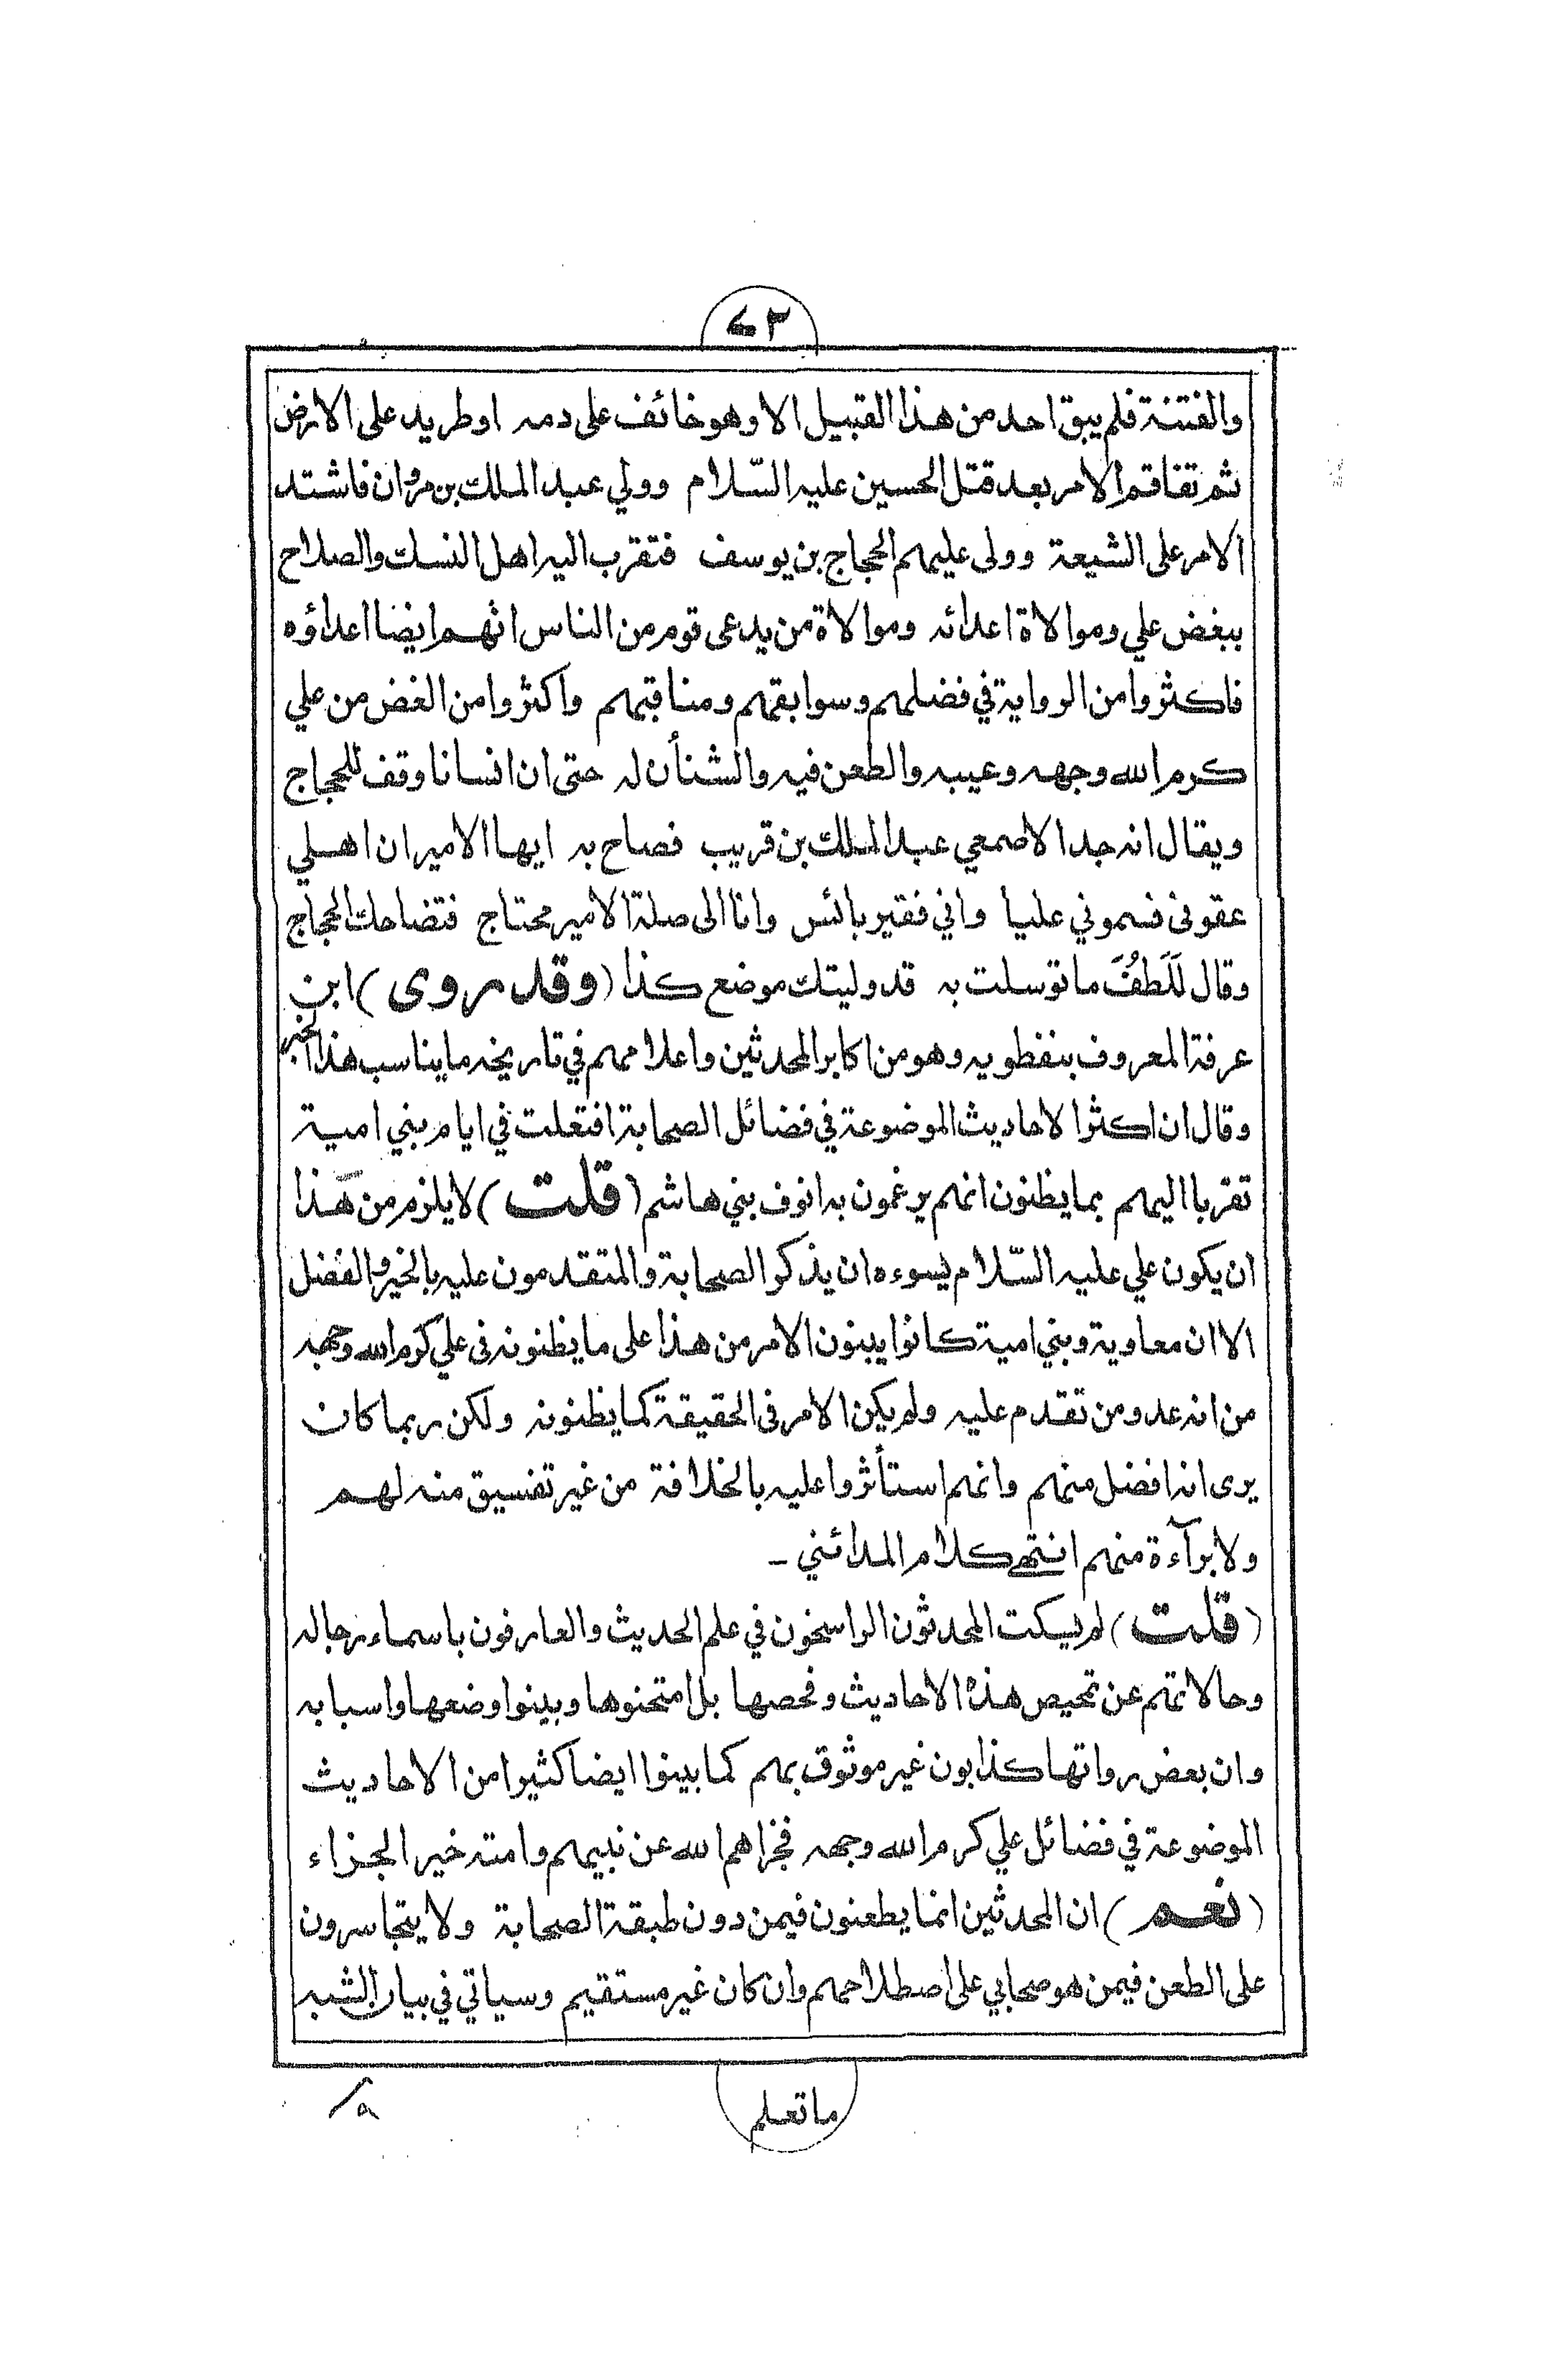 والفتنة فلم يبق احد من هذا القبيل الا وهو خائف على دمه او طريد على الارض
ثم تفاقم الامر بعد قتل الحسين عليه السّلام وولي عبد الملك بن مروان فاشتد
الامر على الشيعة وولى عليهم الحجاج بن يوسف فتقرب اليه اهل النسك والصلاح
ببغض علي وموالاة اعدائه وموالاة من يدعى قوم من الناس انهم ايضا اعداؤه
فاكثروا من الرواية في فضلهم وسوابقهم ومناقبهم واكثروا من الغض من علي
كرم الله وجهه وعيبه والطعن فيه والشنأن له حتى ان انسانا وقف للحجاج
ويقال انه جد الاصمعي عبد الملك بن قريب فصاح به ايها الامير ان اهلي
عقونى فسموني عليا واني فقير بائس وانا الى صلة الامير محتاج فتضاحك الحجاج
وقال لَلَطفُ ما توسلت به قد وليتك موضع كذا (وقد روى) ابن
عرفة المعروف بنفطويه وهو من اكابر المحدثين واعلامهم في تاريخه ما يناسب هذا الخبر
وقال ان اكثر الاحاديث الموضوعة في فضائل الصحابة افتعلت في ايام بني امية
تقربا اليهم بما يظنون انهم يرغمون به انوف بني هاشم (قلت) لا يلزم من هذا
ان يكون علي عليه السّلام يسوءه ان يذكر الصحابة والمتقدمون عليه بالخير والفضل
الا ان معاوية وبني امية كانوا يبنون الامر من هذا على ما يظنونه فى علي كرم الله وجهه
من انه عدو من تقدم عليه ولم يكن الامر فى الحقيقة كما يظنونه ولكن ربما كان
يرى انه افضل منهم وانهم استأثروا عليه بالخلافة من غير تفسيق منه لهم
ولا برآءة منهم انتهى كلام المدائني -
(قلت) لم يسكت المحدثون الراسخون في علم الحديث والعارفون باسماء رجاله
وحالاتهم عن تمحيص هذه الاحاديث وفحصها بل امتحنوها وبينوا وضعها واسبابه
وان بعض رواتها كذابون غير موثوق بهم كما بينوا ايضا كثيرا من الاحاديث
الموضوعة في فضائل علي كرم الله وجهه فجزاهم الله عن نبيهم وامته خير الجزاء
(نعم) ان المحدثين انما يطعنون فيمن دون طبقة الصحابة ولا يتجاسرون
على الطعن فيمن هو صحابي على اصطلاحهم وان كان غير مستقيم وسياتي في بيان الشبه
ما تعلم